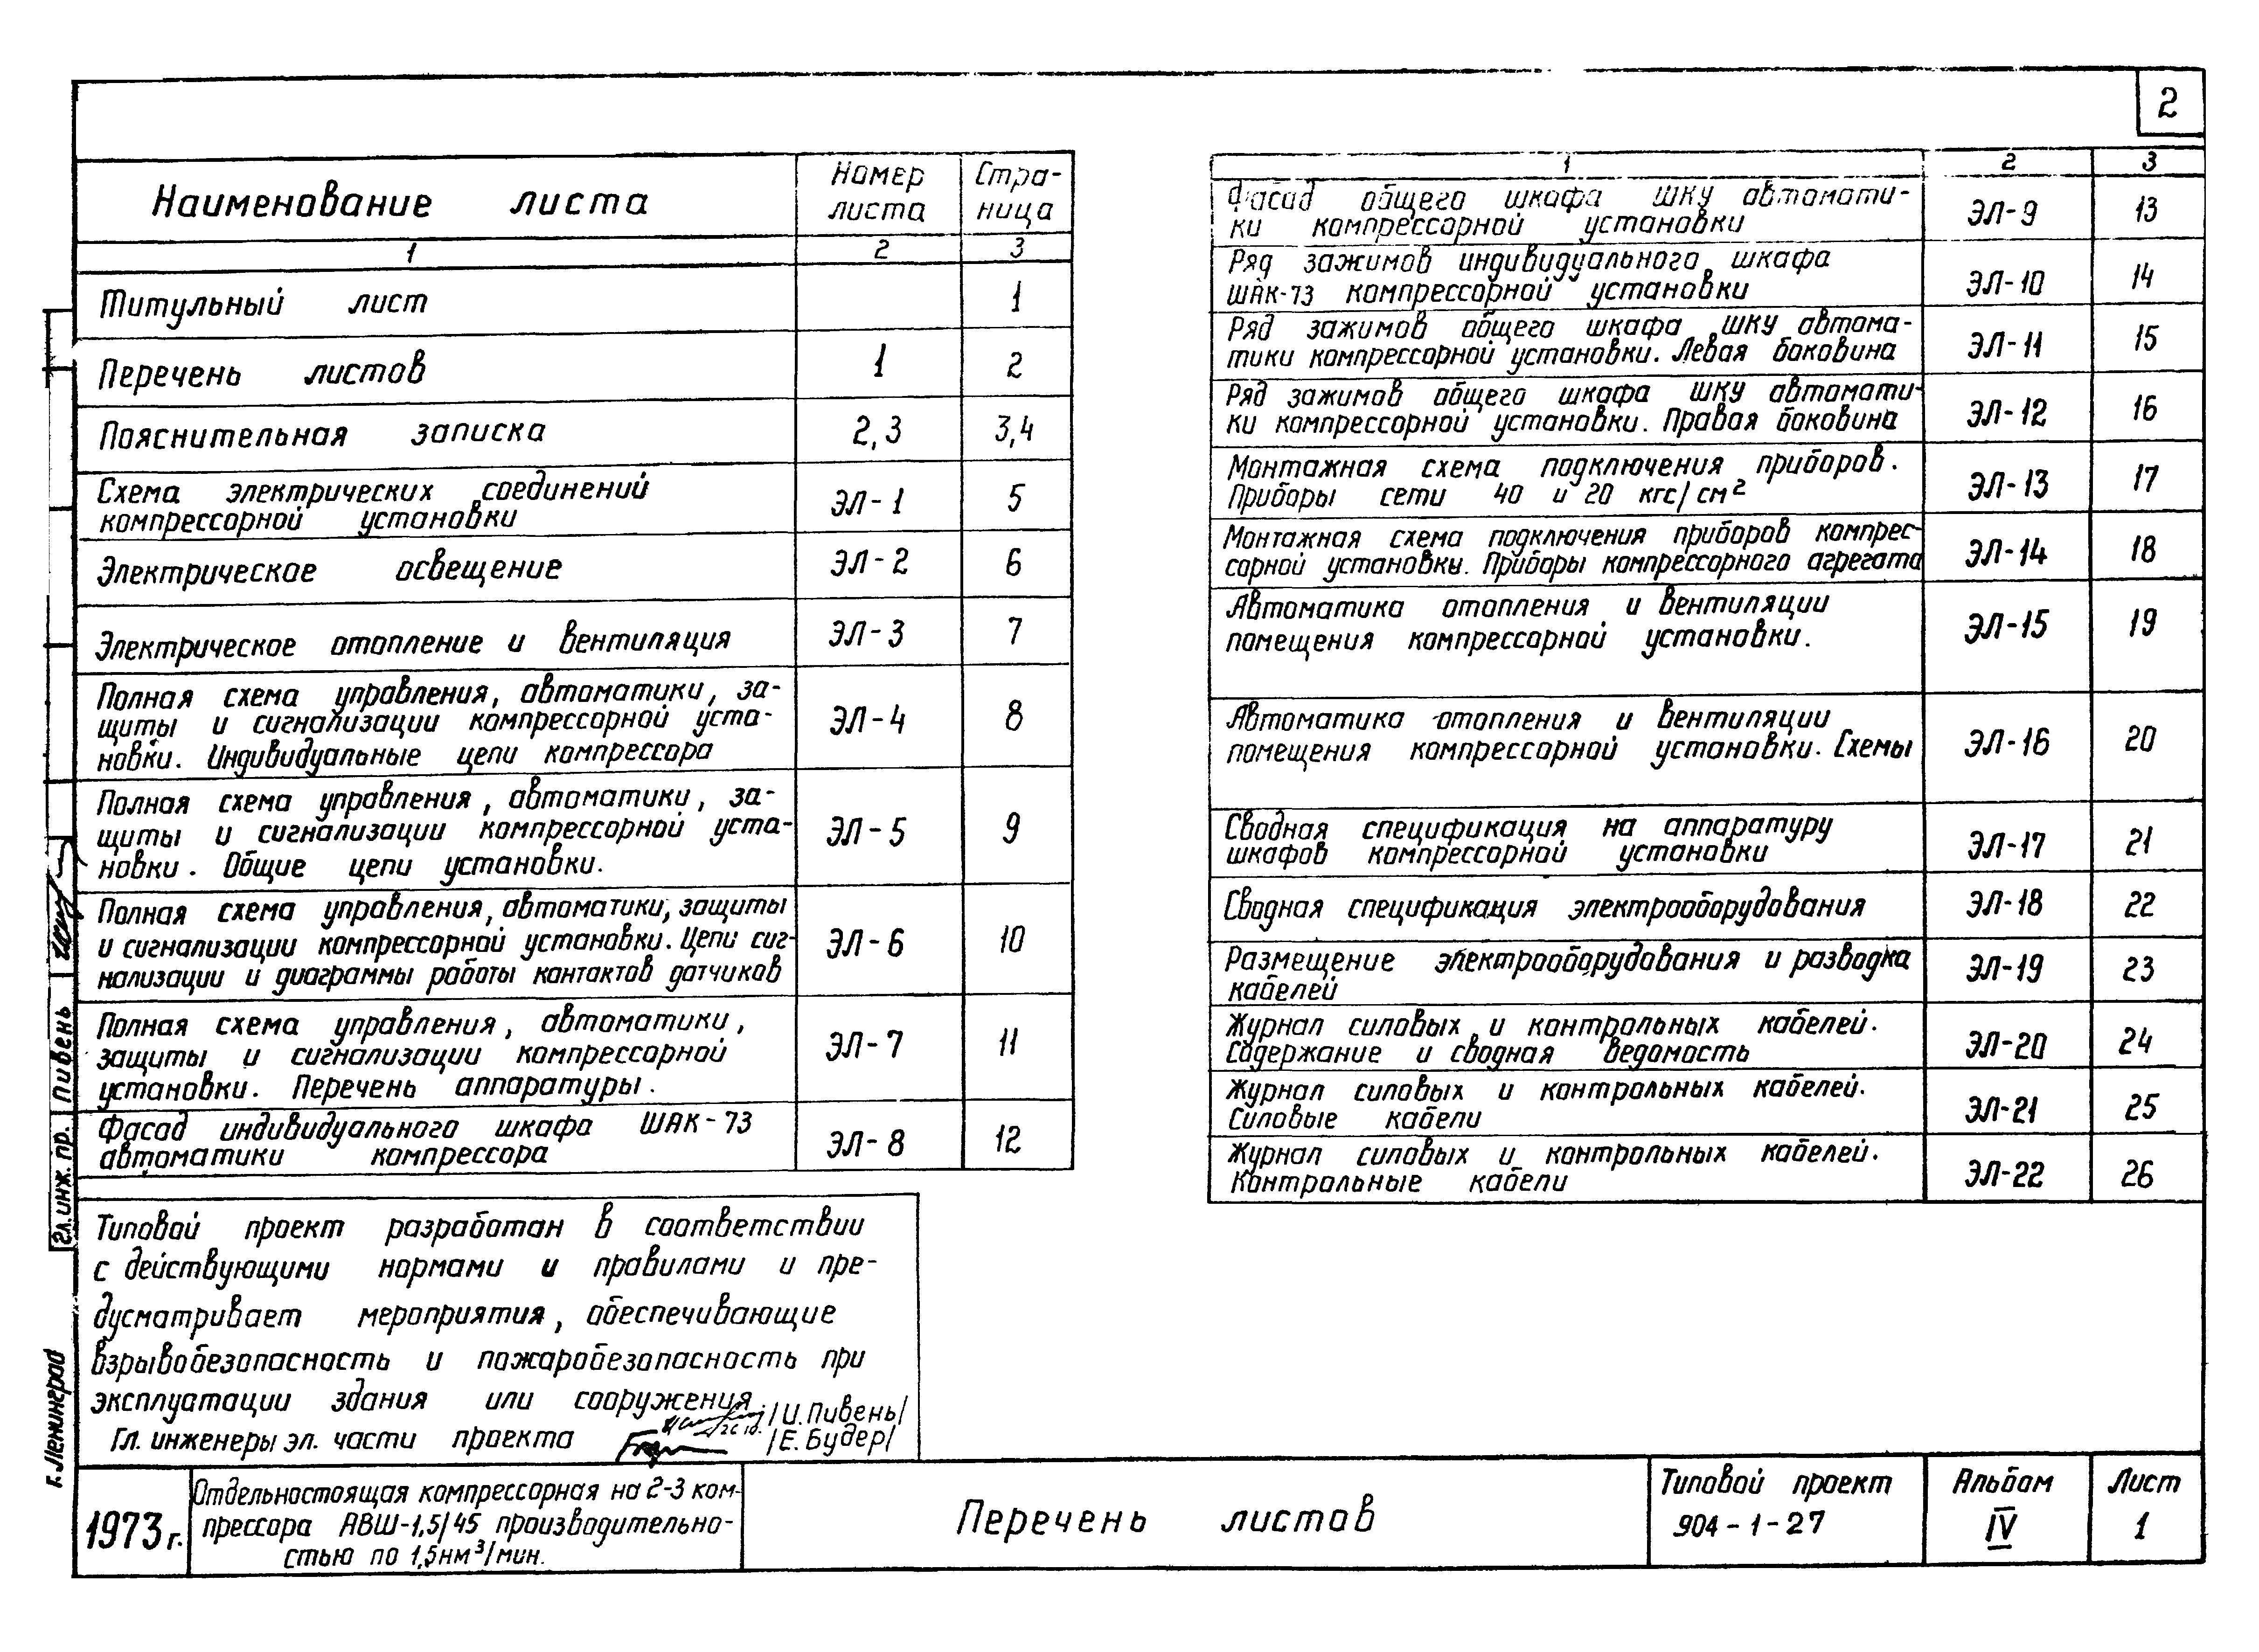 2
Наименование листа
Номер листа
Стра-
ница
1 2 3
Титульный лист 1
Перечень листов 1 2
Пояснительная записка 2,3 3,4
Схема электрических соединений
компрессорной установки ЭЛ-1 5
Электрическое освещение ЭЛ-2 6
Электрическое отопление и вентиляция ЭЛ-3 7
Полная схема управления, автоматики, за-
щиты и сигнализации компрессорной уста-
новки. Индивидуальные цепи компрессора ЭЛ-4 8
Полная схема управления, автоматики, за-
щиты и сигнализации компрессорной уста-
новки. Общие цепи установки. ЭЛ-5 9
Полная схема управления, автоматики, защиты
и сигнализации компрессорной установки. Цепи сиг-
нализации и диаграммы работы контактов датчиков ЭЛ-6 10
Полная схема управления, автоматики,
защиты и сигнализации компрессорной
установки. Перечень аппаратуры. ЭЛ-7 11
Фасад индивидуального шкафа ШАК-73
автоматики компрессора ЭЛ-8 12
1 2 3
Фасад общего шкафа ШКУ автомати-
ки компрессорной установки ЭЛ-9 13
Ряд зажимов индивидуального шкафа
ШАК-73 компрессорной установки ЭЛ-10 14
Ряд зажимов общего шкафа ШКУ автома-
тики компрессорной установки. Левая боковина ЭЛ-11 15
Ряд зажимов общего шкафа ШКУ автомати-
ки компрессорной установки. Правая боковина ЭЛ-12 16
Монтажная схема подключения приборов.
Приборы сети 40 и 20 кгс/см² ЭЛ-13 17
Монтажная схема подключения приборов компрес-
сорной установки. Приборы компрессорного агрегата ЭЛ-14 18
Автоматика отопления и вентиляции
помещения компрессорной установки. ЭЛ-15 19
Автоматика отопления и вентиляции
помещения компрессорной установки. Схемы ЭЛ-16 20
Сводная спецификация на аппаратуру
шкафов компрессорной установки ЭЛ-17 21
Сводная спецификация электрооборудования ЭЛ-18 22
Размещение электрооборудования и разводка
кабелей ЭЛ-19 23
Журнал силовых и контрольных кабелей.
Содержание и сводная ведомость ЭЛ-20 24
Журнал силовых и контрольных кабелей.
Силовые кабели ЭЛ-21 25
Журнал силовых и контрольных кабелей.
Контрольные кабели ЭЛ-22 26
Типовой проект разработан в соответствии
с действующими нормами и правилами и пре-
дусматривает мероприятия, обеспечивающие
взрывобезопасность и пожаробезопасность при
эксплуатации здания или сооружения
Гл. инженеры эл. части проекта /И. Пивень/
/Е. Будер/
Гл. инж. пр. Пивень
г. Ленинград
1973 г.
Отдельностоящая компрессорная на 2-3 ком-
прессора АВШ-1,5/45 производительно-
стью по 1,5нм³/мин.
Перечень листов
Типовой проект
904-1-27
Альбом
IV
Лист
1